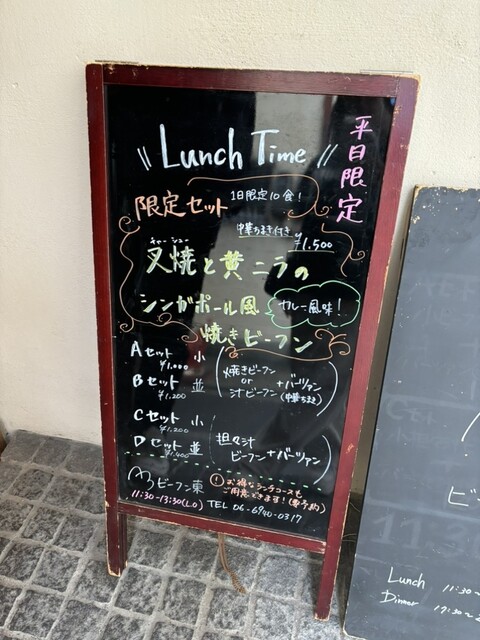 \\ Lunch Time //
平日限定
限定セット 1日限定10食!
中華ちまき付き ¥1,500
チャーシュー
叉焼と黄ニラの
シンガポール風
カレー風味!
焼きビーフン
Aセット 小
¥1,000
Bセット 並
¥1,200
焼きビーフン
or +バーツァン
汁ビーフン (中華ちまき)
Cセット 小
¥1,200
Dセット 並
¥1,400
担々汁
ビーフン+バーツァン
ビーフン東
! お得なランチコースも
ご用意できます!(要予約)
11:30-13:30(L.O) TEL 06-6940-0317
ビ
Lunch 11:30~
Dinner 17:30~